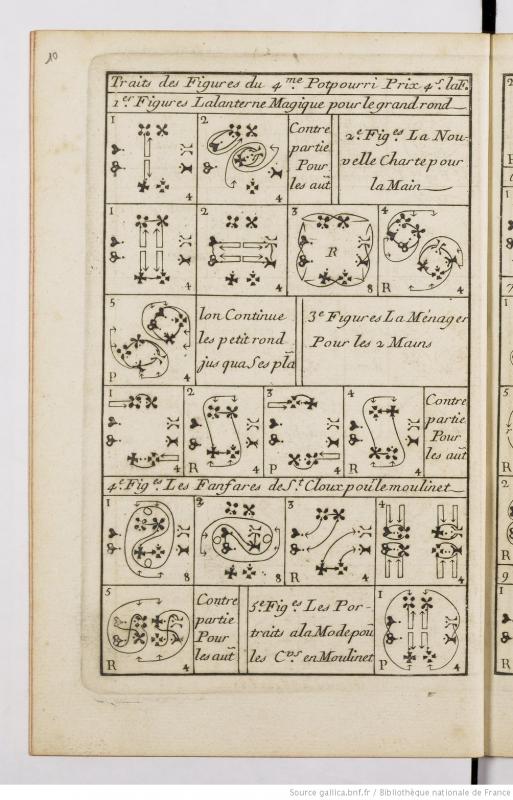 10
Traits des Figures du 4.me Potpourri Prix 4.s la F.
1.es Figures La lanterne Magique pour le grand rond
1 2
Contre
partie
Pour
les aut̄
2.e Fig.es La Nou-
velle Charte pour
la Main
4 4
1 2 3 4
R
4 4 8 R 4
5
lon Continue
les petit rond
jus qua Ses pla
P 4
3.e Figures La Ménager
Pour les 2 Mains
1 2 3 4
Contre
partie
Pour
les aut̄
4 R 4 P 4 R 4
4.e Fig.es Les Fanfares de S.t Cloux pour le moulinet
1 2 3 4
8 8 R 4 4
5
Contre
partie
Pour
les aut̄
R 4
5.e Fig.es Les Por-
traits a la Mode poū
les C.vs en Moulinet
1
P 4
Source gallica.bnf.fr / Bibliothèque nationale de France